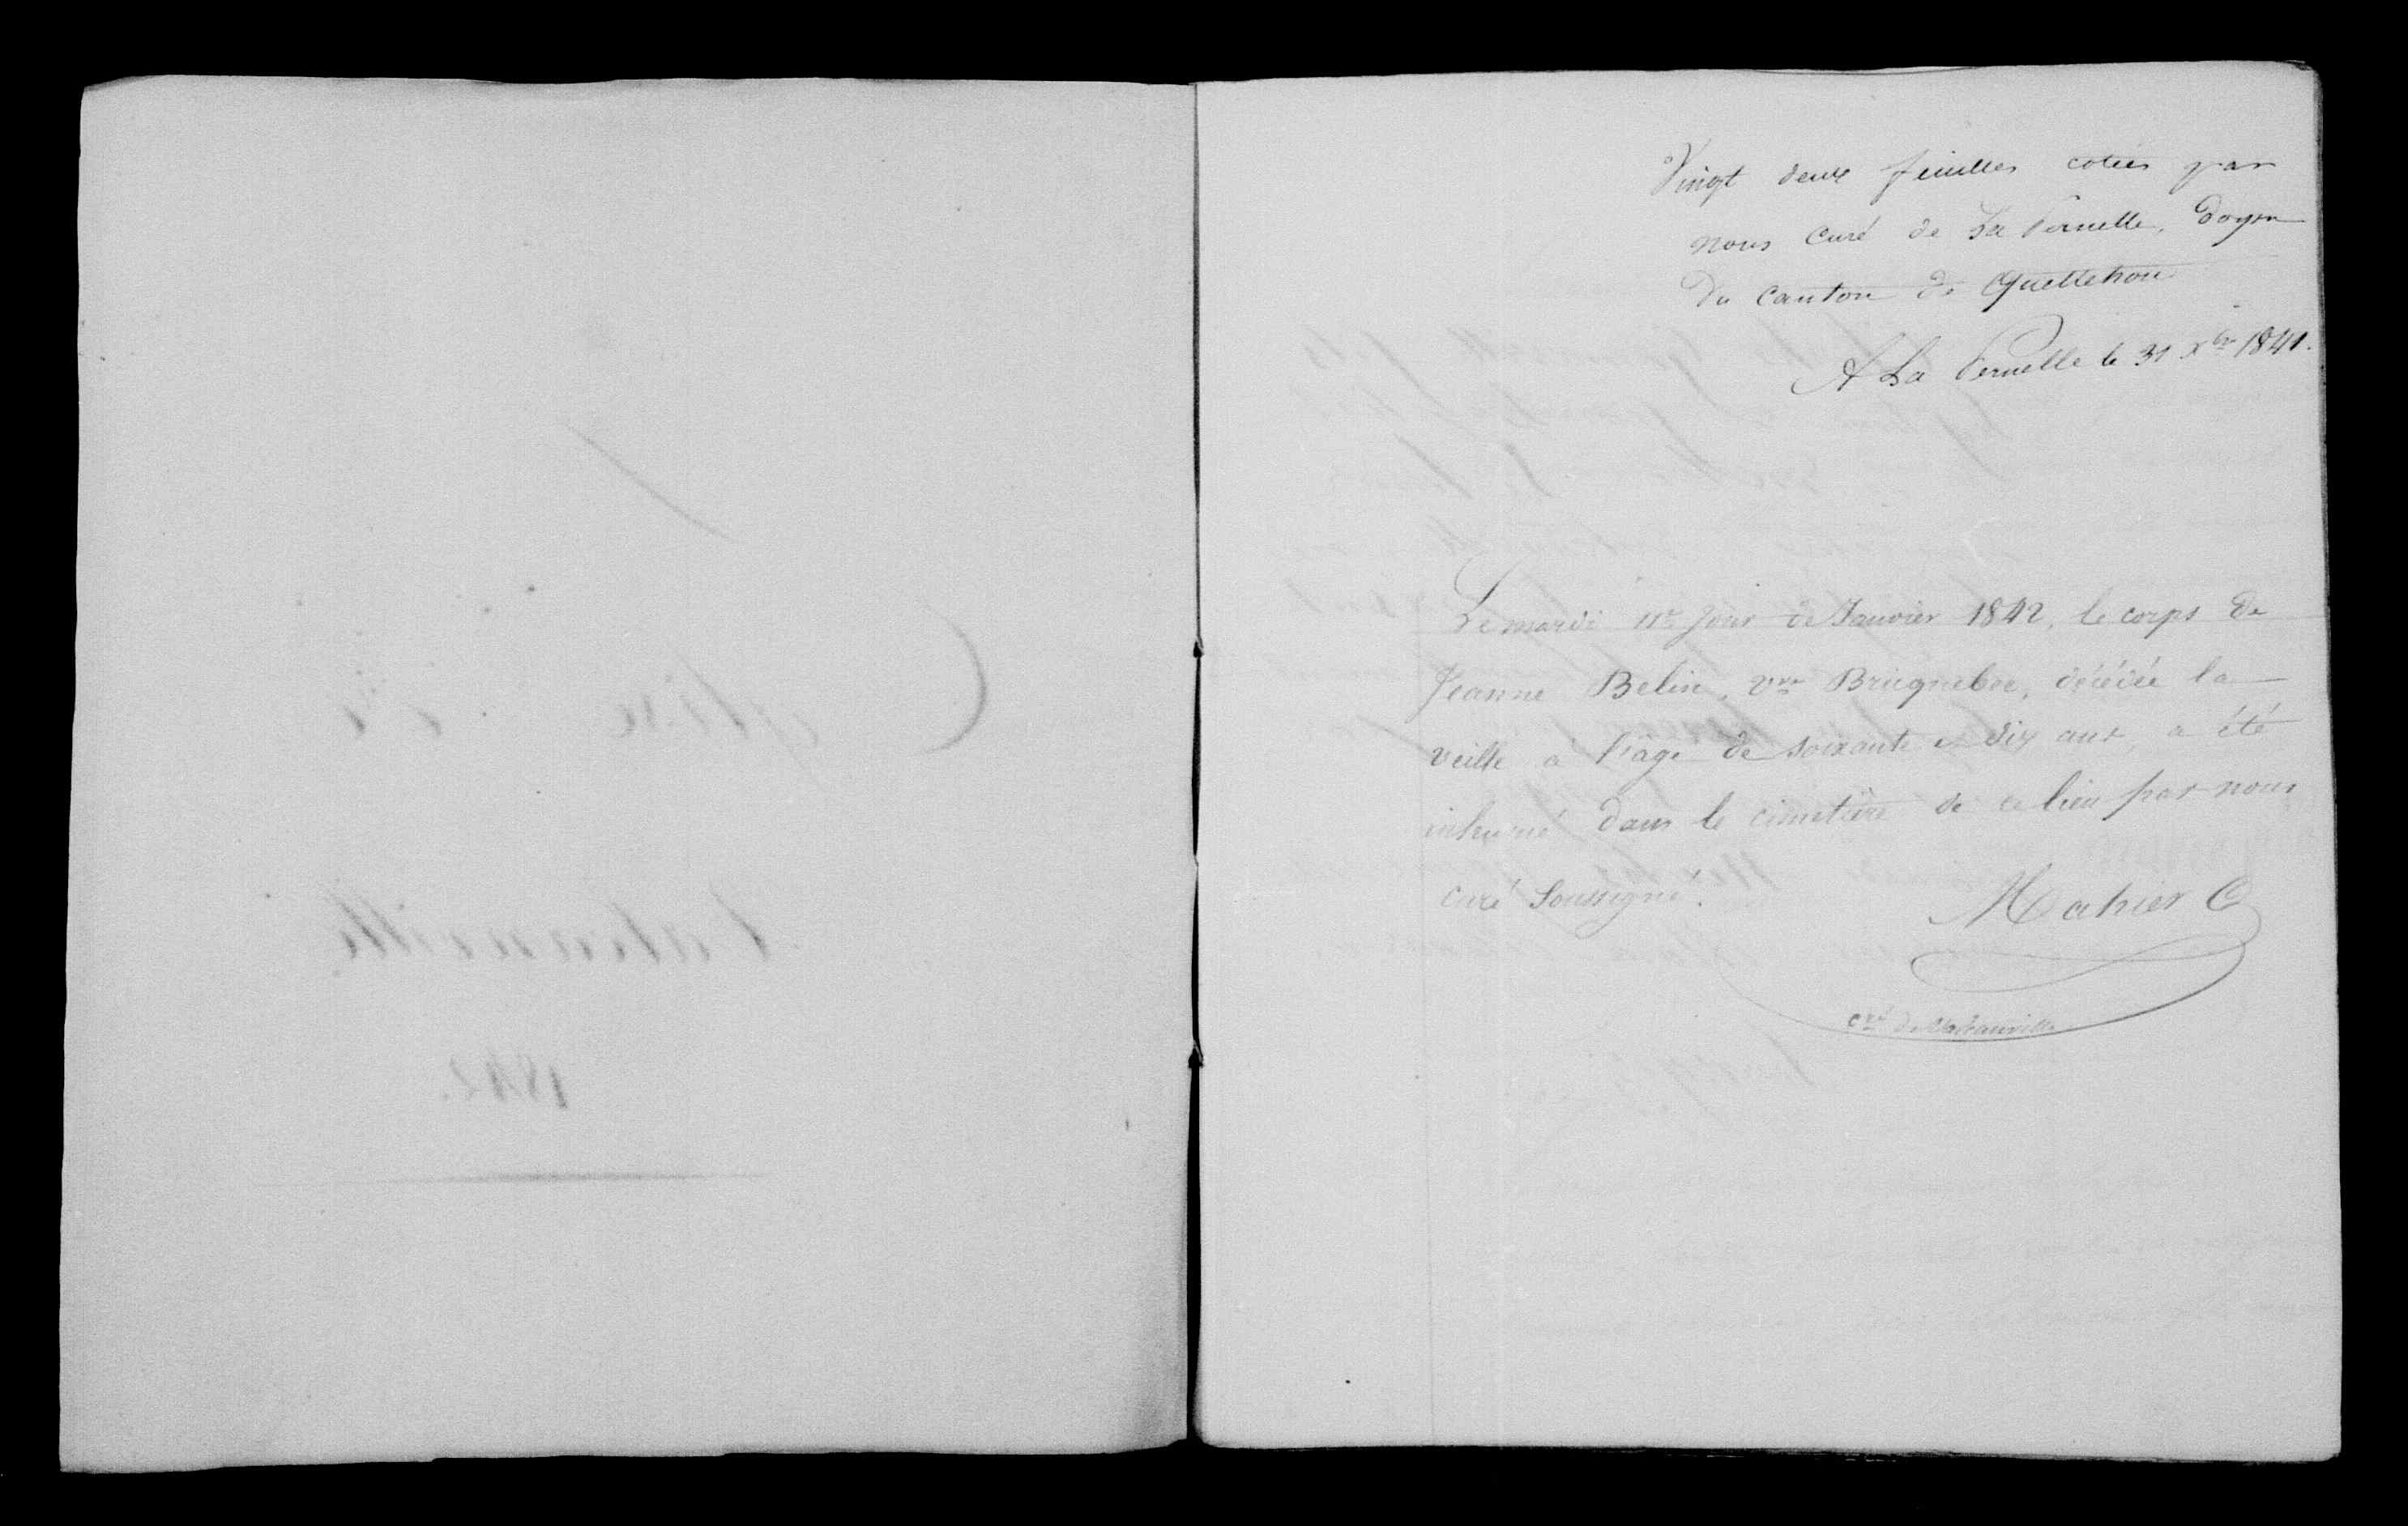 Vingt deux feuilles cotées par
nous curé de La Pernelle, Doyen
du canton de Quettehou
A La Pernelle le 31 Xbre 1841.
Le mardi 11e jour de Janvier 1842, le corps de
Jeanne Belin, vve Bricquebec, décédée la
veille à l'âge de soixante et dix ans, a été
inhumé dans le cimetière de ce lieu par nous
curé soussigné.
Mahier C
cré de
1842.